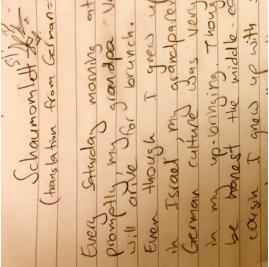 Schaumomlett
(translation from German=
Every Saturday morning at
promptly, my grandpa
will arrive for brunch.
Even though I grew
in Israel, my grandparen
German culture was very
in my upbringing. Thoug
be honest the middle-
cousin I grew up with